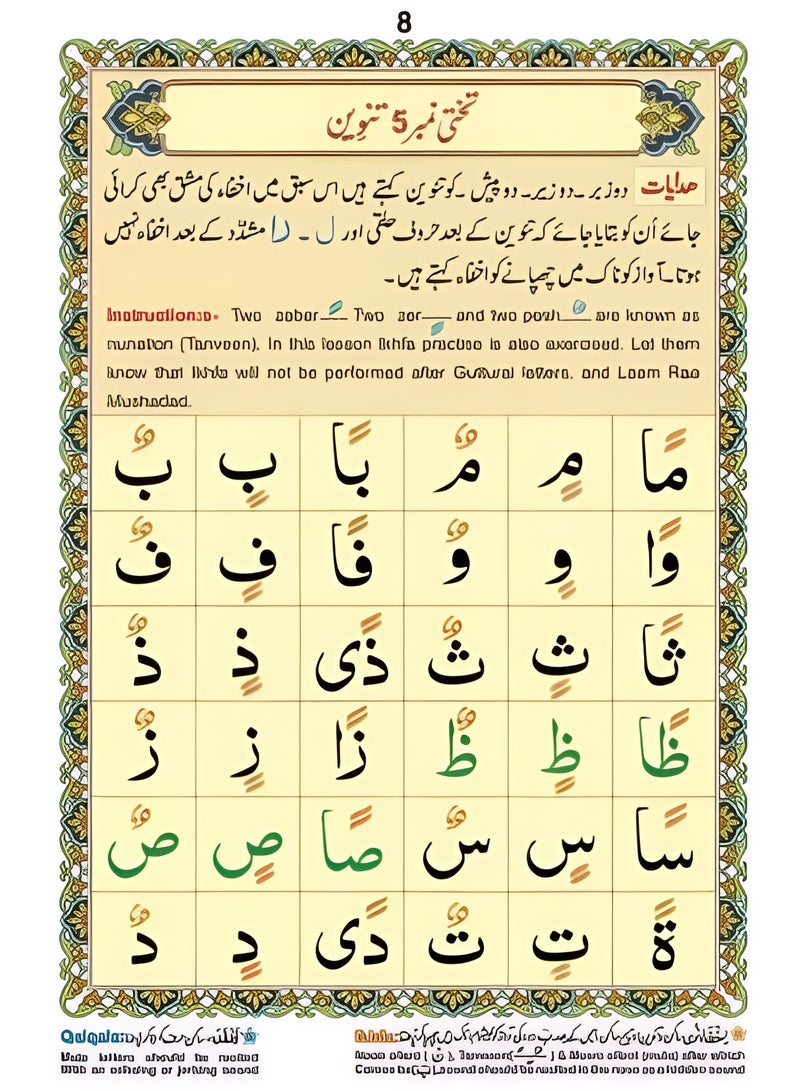 8
تختی نمبر 5 تنوین
ھدایات دو زبر ۔ دو زیر ۔ دو پیش ۔ کو تنوین کہتے ہیں اس سبق میں اخفاء کی مشق بھی کرائی
جائے اُن کو بتایا جائے کہ تنوین کے بعد حروف حلقی اور ل ۔ ر مشدّد کے بعد اخفاء نہیں
ہوتا۔ آواز کو ناک میں چھپانے کو اخفاء کہتے ہیں۔
Instructions:- Two zabar Two zer and two pesh are known as
nunation (Tanveen). In this lesson Ikhfa practice is also exercised. Let them
know that Ikhfa will not be performed after Guttural letters, and Laam Raa
Mushadad.
مًا مٍ مٌ بًا بٍ بٌ
وًا وٍ وٌ فًا فٍ فٌ
ثًا ثٍ ثٌ ذًی ذٍ ذٌ
ظًا ظٍ ظٌ زًا زٍ زٌ
سًا سٍ سٌ صًا صٍ صٌ
ةً تٍ تٌ دًی دٍ دٌ
Qalqala: